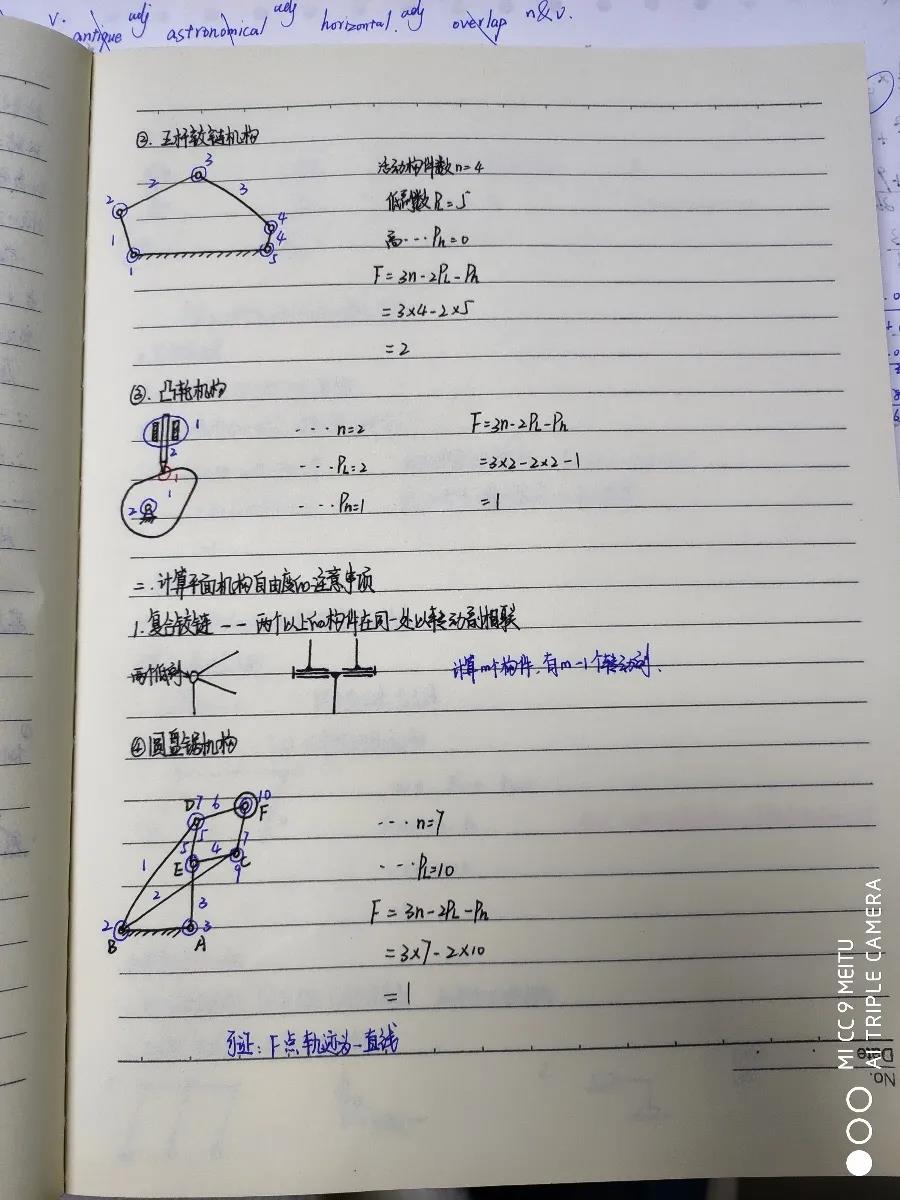 v. antique adj astronomical adj horizontal. adj overlap n&v.
②. 五杆铰链机构
活动构件数n=4
低副数PL=5
高···Ph=0
F=3n-2PL-Ph
=3×4-2×5
=2
1 2 3 4
1 2 3 4 5
③. 凸轮机构
1 2 1 1 2
··· n=2
··· PL=2
··· Ph=1
F=3n-2PL-Ph
=3×2-2×2-1
=1
二.计算平面机构自由度的注意事项
1.复合铰链 -- 两个以上的构件在同一处以转动副相联
两个低副
计算m个构件,有m-1个转动副.
④圆盘锯机构
D 7 6 10 F
5 5 4 7
1 E C 9
2 3
2 B A 3
··· n=7
··· PL=10
F=3n-2PL-Ph
=3×7-2×10
=1
可证:F点轨迹为一直线
No.
Date
MI CC 9 MEITU
AI TRIPLE CAMERA